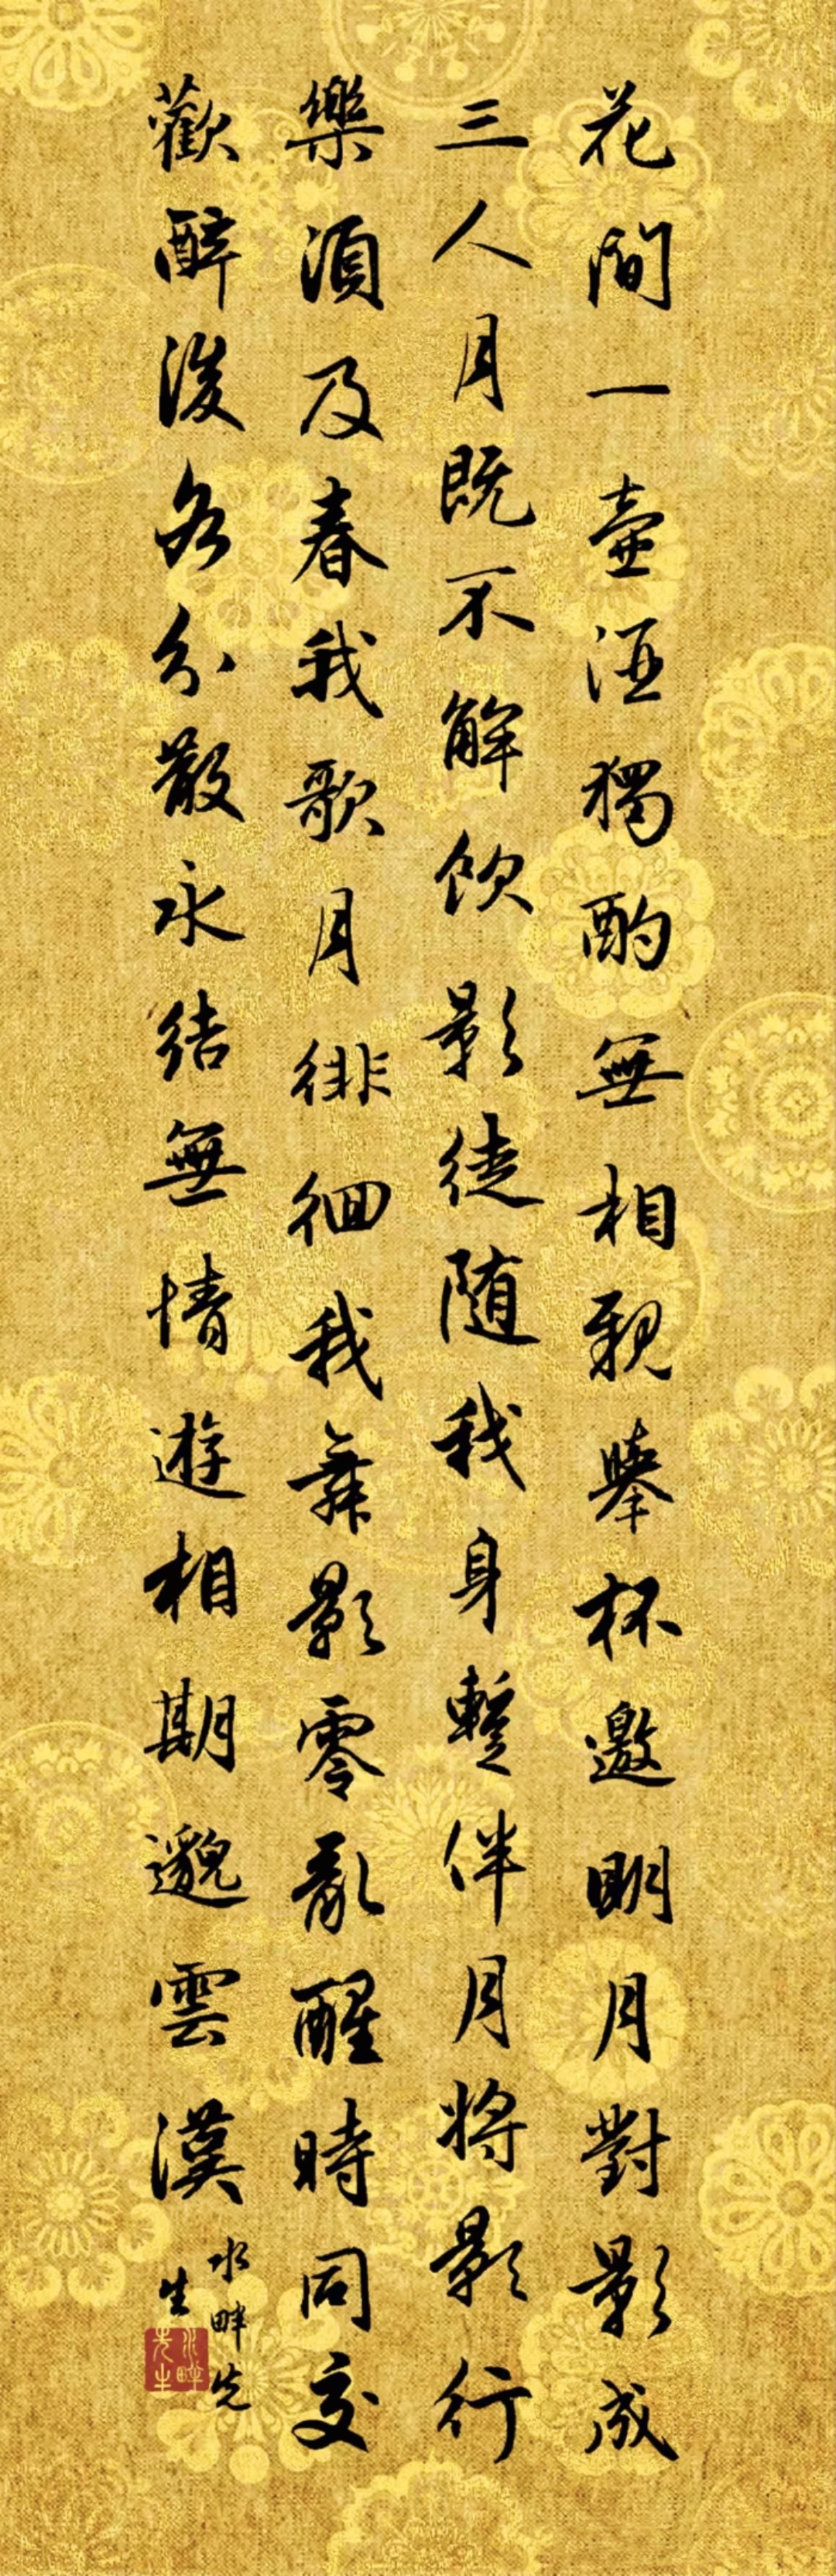 花間一壺酒獨酌無相親舉杯邀明月對影成
三人月既不解飲影徒随我身暫伴月将影行
樂須及春我歌月徘徊我舞影零亂醒時同交
歡醉後各分散永結無情遊相期邈雲漢
水畔先
生
水畔
先生